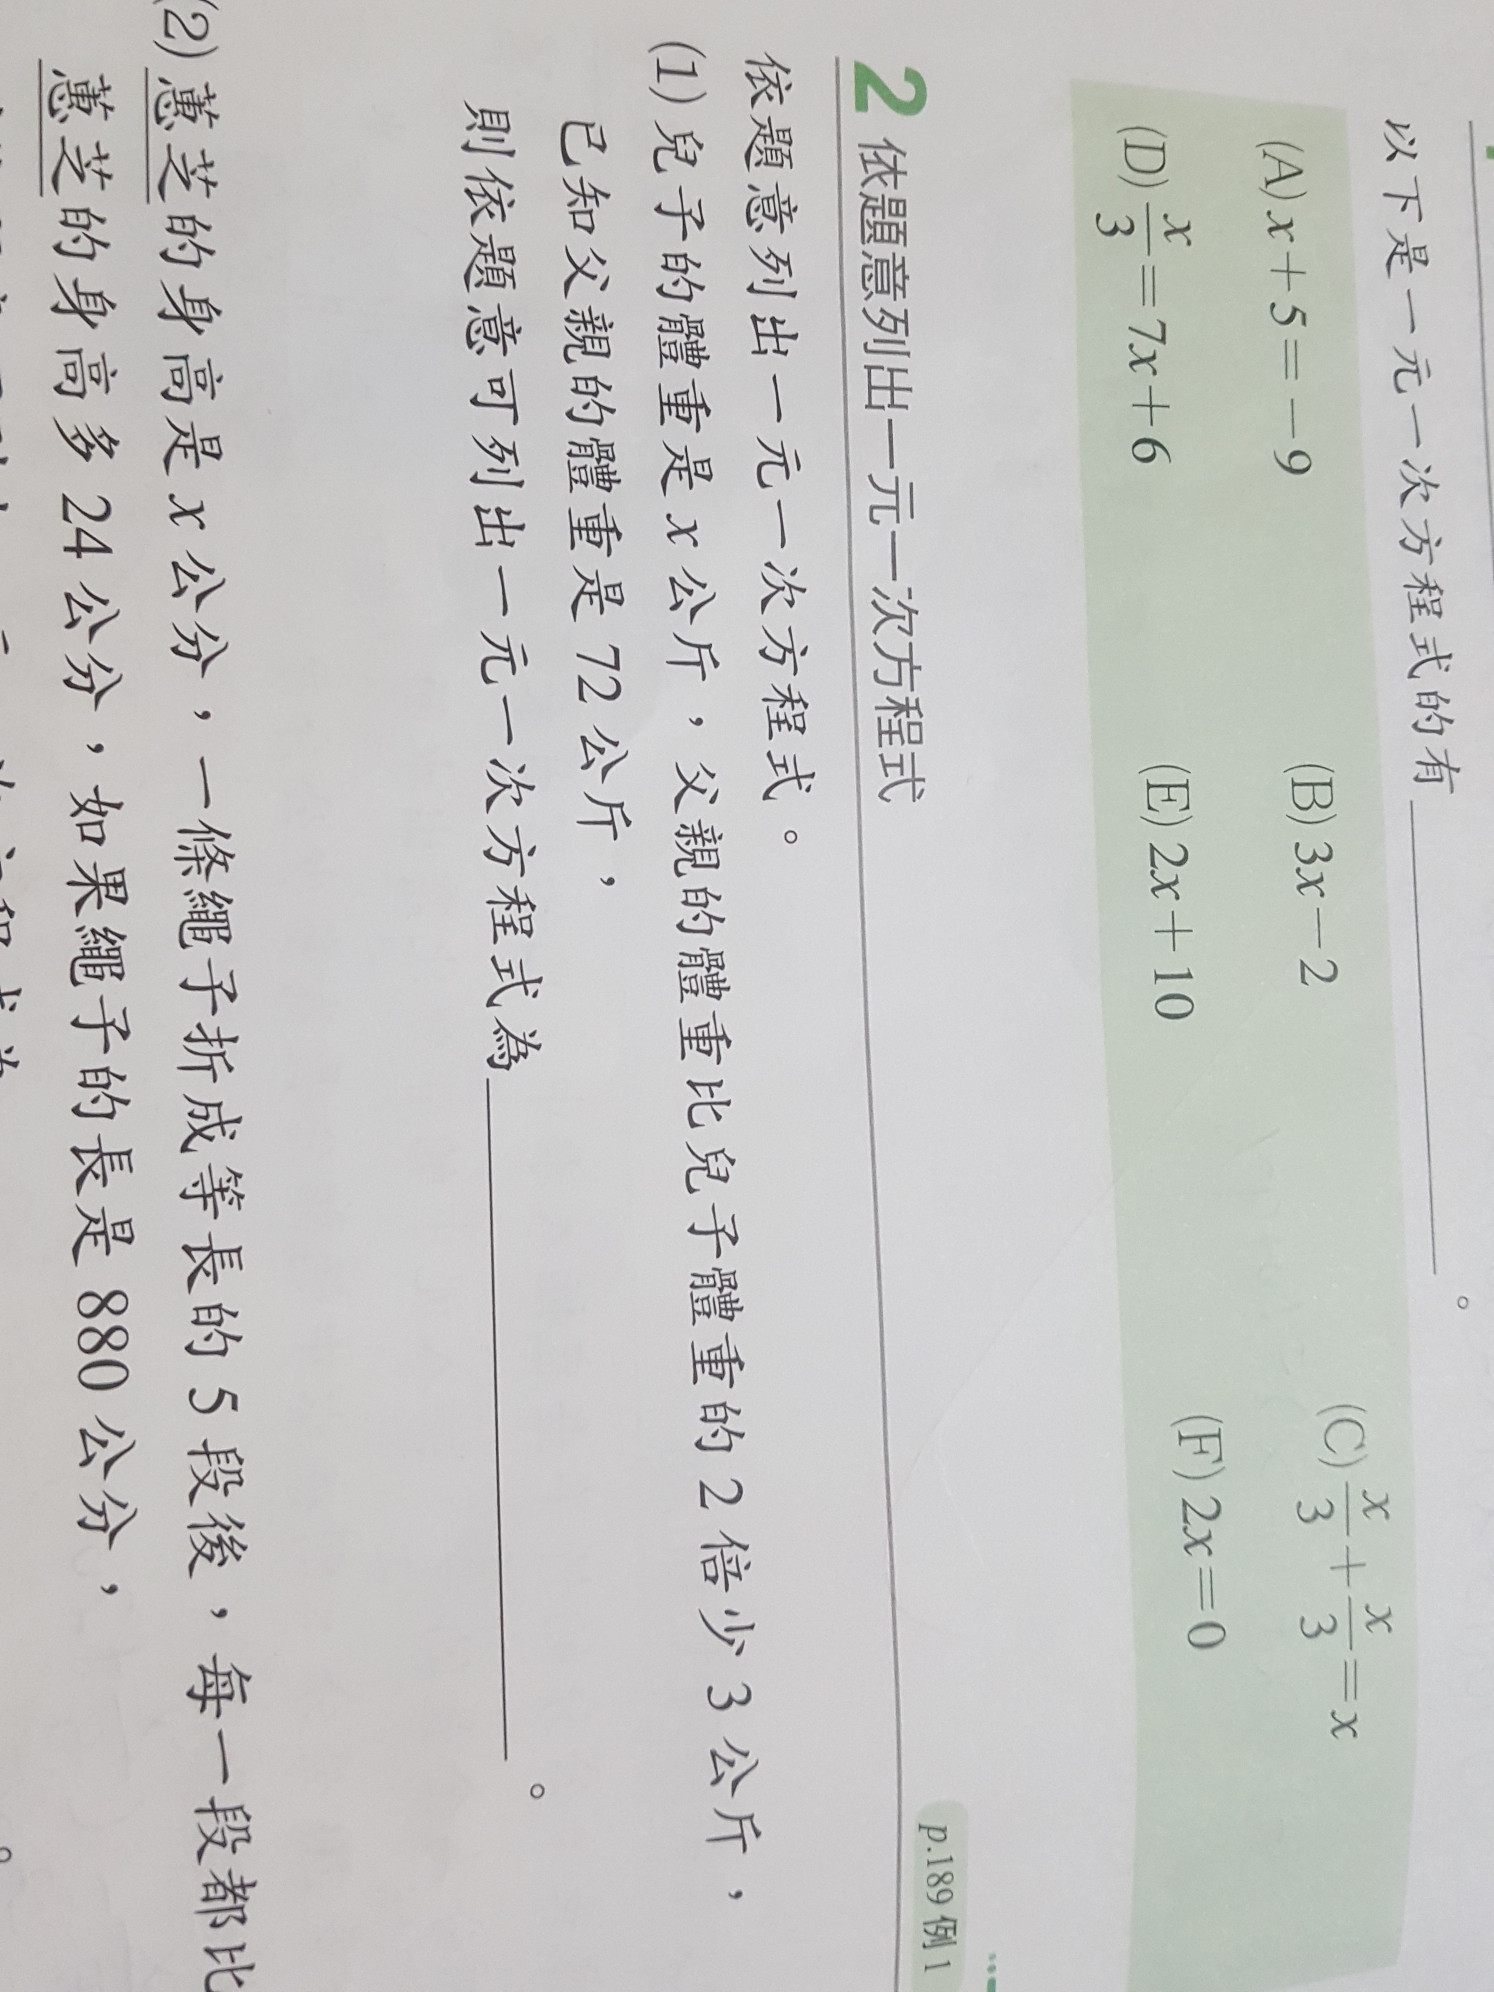 以下是一元一次方程式的有＿＿＿＿＿＿。
(A) x+5=-9 (B) 3x-2 (C) x/3+x/3=x
(D) x/3=7x+6 (E) 2x+10 (F) 2x=0
2 依題意列出一元一次方程式 p.189 例 1
依題意列出一元一次方程式。
(1) 兒子的體重是 x 公斤，父親的體重比兒子體重的 2 倍少 3 公斤，
已知父親的體重是 72 公斤，
則依題意可列出一元一次方程式為＿＿＿＿＿＿。
(2) 蕙芝的身高是 x 公分，一條繩子折成等長的 5 段後，每一段都比
蕙芝的身高多 24 公分，如果繩子的長是 880 公分，